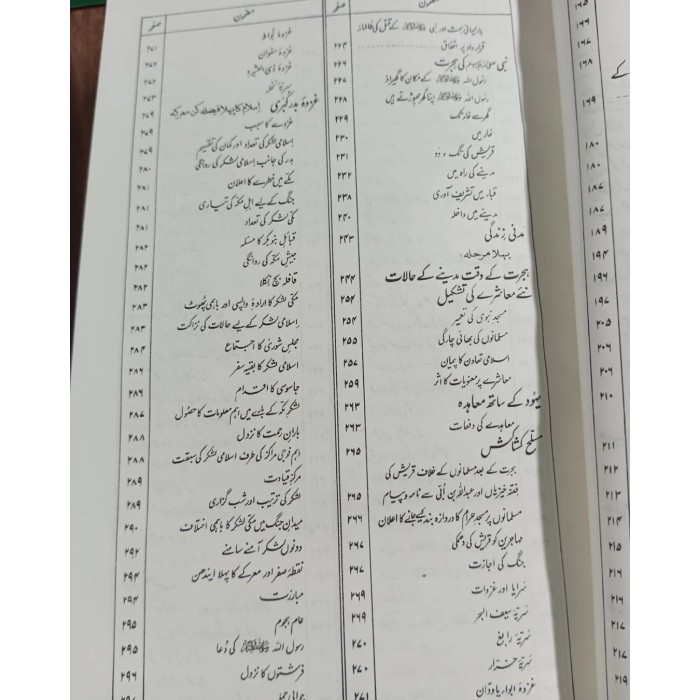 مضمون صفحہ
پارلیمانی بحث اور نبی ﷺ کے قتل کی ظالمانہ
قرارداد پر اتفاق ۲۲۴
نبی ﷺ کی ہجرت ۲۲۶
رسول اللہ ﷺ کے مکان کا گھیراؤ ۲۲۷
رسول اللہ ﷺ اپنا گھر چھوڑتے ہیں ۲۲۸
گھر سے غار تک ۲۲۹
غار میں ۲۳۰
قریش کی تگ و دو ۲۳۱
مدینے کی راہ میں ۲۳۲
قباء میں تشریف آوری ۲۳۸
مدینے میں داخلہ ۲۴۰
مدنی زندگی ۲۴۳
پہلا مرحلہ:
ہجرت کے وقت مدینے کے حالات ۲۴۴
نئے معاشرے کی تشکیل ۲۵۴
مسجد نبوی کی تعمیر ۲۵۴
مسلمانوں کی بھائی چارگی ۲۵۵
اسلامی تعاون کا پیمان ۲۵۷
معاشرے پر معنویات کا اثر ۲۵۹
یہود کے ساتھ معاہدہ ۲۶۳
معاہدے کی دفعات ۲۶۳
مسلح کشاکش ۲۶۵
ہجرت کے بعد مسلمانوں کے خلاف قریش کی
فتنہ خیزیاں اور عبداللہ بن اُبَیّ سے نامہ و پیام ۲۶۵
مسلمانوں پر مسجد حرام کا دروازہ بند کیے جانے کا اعلان ۲۶۶
مہاجرین کو قریش کی دھمکی
جنگ کی اجازت ۲۶۷
سرایا اور غزوات ۲۶۹
سریۂ سیف البحر ۲۶۹
سریۂ رابغ ۲۷۰
سریۂ خرار ۲۷۰
غزوۂ ابواء یا ودان ۲۷۱
مضمون صفحہ
غزوۂ بواط ۲۷۱
غزوۂ سفوان ۲۷۲
غزوۂ ذی العشیرہ ۲۷۲
سریۂ نخلہ ۲۷۳
غزوۂ بدر کُبریٰ اسلام کا پہلا فیصلہ کن معرکہ ۲۷۹
غزوے کا سبب ۲۷۹
اسلامی لشکر کی تعداد اور کمان کی تقسیم ۲۷۹
بدر کی جانب اسلامی لشکر کی روانگی ۲۸۰
مکے میں خطرے کا اعلان ۲۸۱
جنگ کے لیے اہل مکہ کی تیاری ۲۸۱
مکی لشکر کی تعداد ۲۸۱
قبائل بنو بکر کا مسئلہ ۲۸۲
جیش مکہ کی روانگی ۲۸۲
قافلہ بچ نکلا ۲۸۲
مکی لشکر کا ارادۂ واپسی اور باہمی پھوٹ ۲۸۳
اسلامی لشکر کے لیے حالات کی نزاکت ۲۸۳
مجلس شوریٰ کا اجتماع ۲۸۴
اسلامی لشکر کا بقیہ سفر ۲۸۶
جاسوسی کا اقدام ۲۸۶
لشکر مکہ کے بارے میں اہم معلومات کا حصول ۲۸۷
باران رحمت کا نزول ۲۸۸
اہم فوجی مراکز کی طرف اسلامی لشکر کی سبقت ۲۸۸
مرکز قیادت ۲۸۹
لشکر کی ترتیب اور شب گزاری ۲۸۹
میدان جنگ میں مکی لشکر کا باہمی اختلاف ۲۹۰
دونوں لشکر آمنے سامنے ۲۹۲
نقطۂ صفر اور معرکے کا پہلا ایندھن ۲۹۴
مبارزت ۲۹۴
عام ہجوم ۲۹۵
رسول اللہ ﷺ کی دُعا ۲۹۵
فرشتوں کا نزول ۲۹۶
جوابی حملہ
۱۶۶
۱۶۸
۱۶۹
۱۸۰
۱۸۰
۱۸۶
۱۸۷
۱۸۹
۱۹۴
۱۹۶
۱۹۷
۲۰۵
۲۰۶
۲۰۶
۲۱۰
۲۱۱
۲۱۲
۲۱۳
۲۱۴
۲۱۵
۲۱۶
۲۱۶
۲۱۷